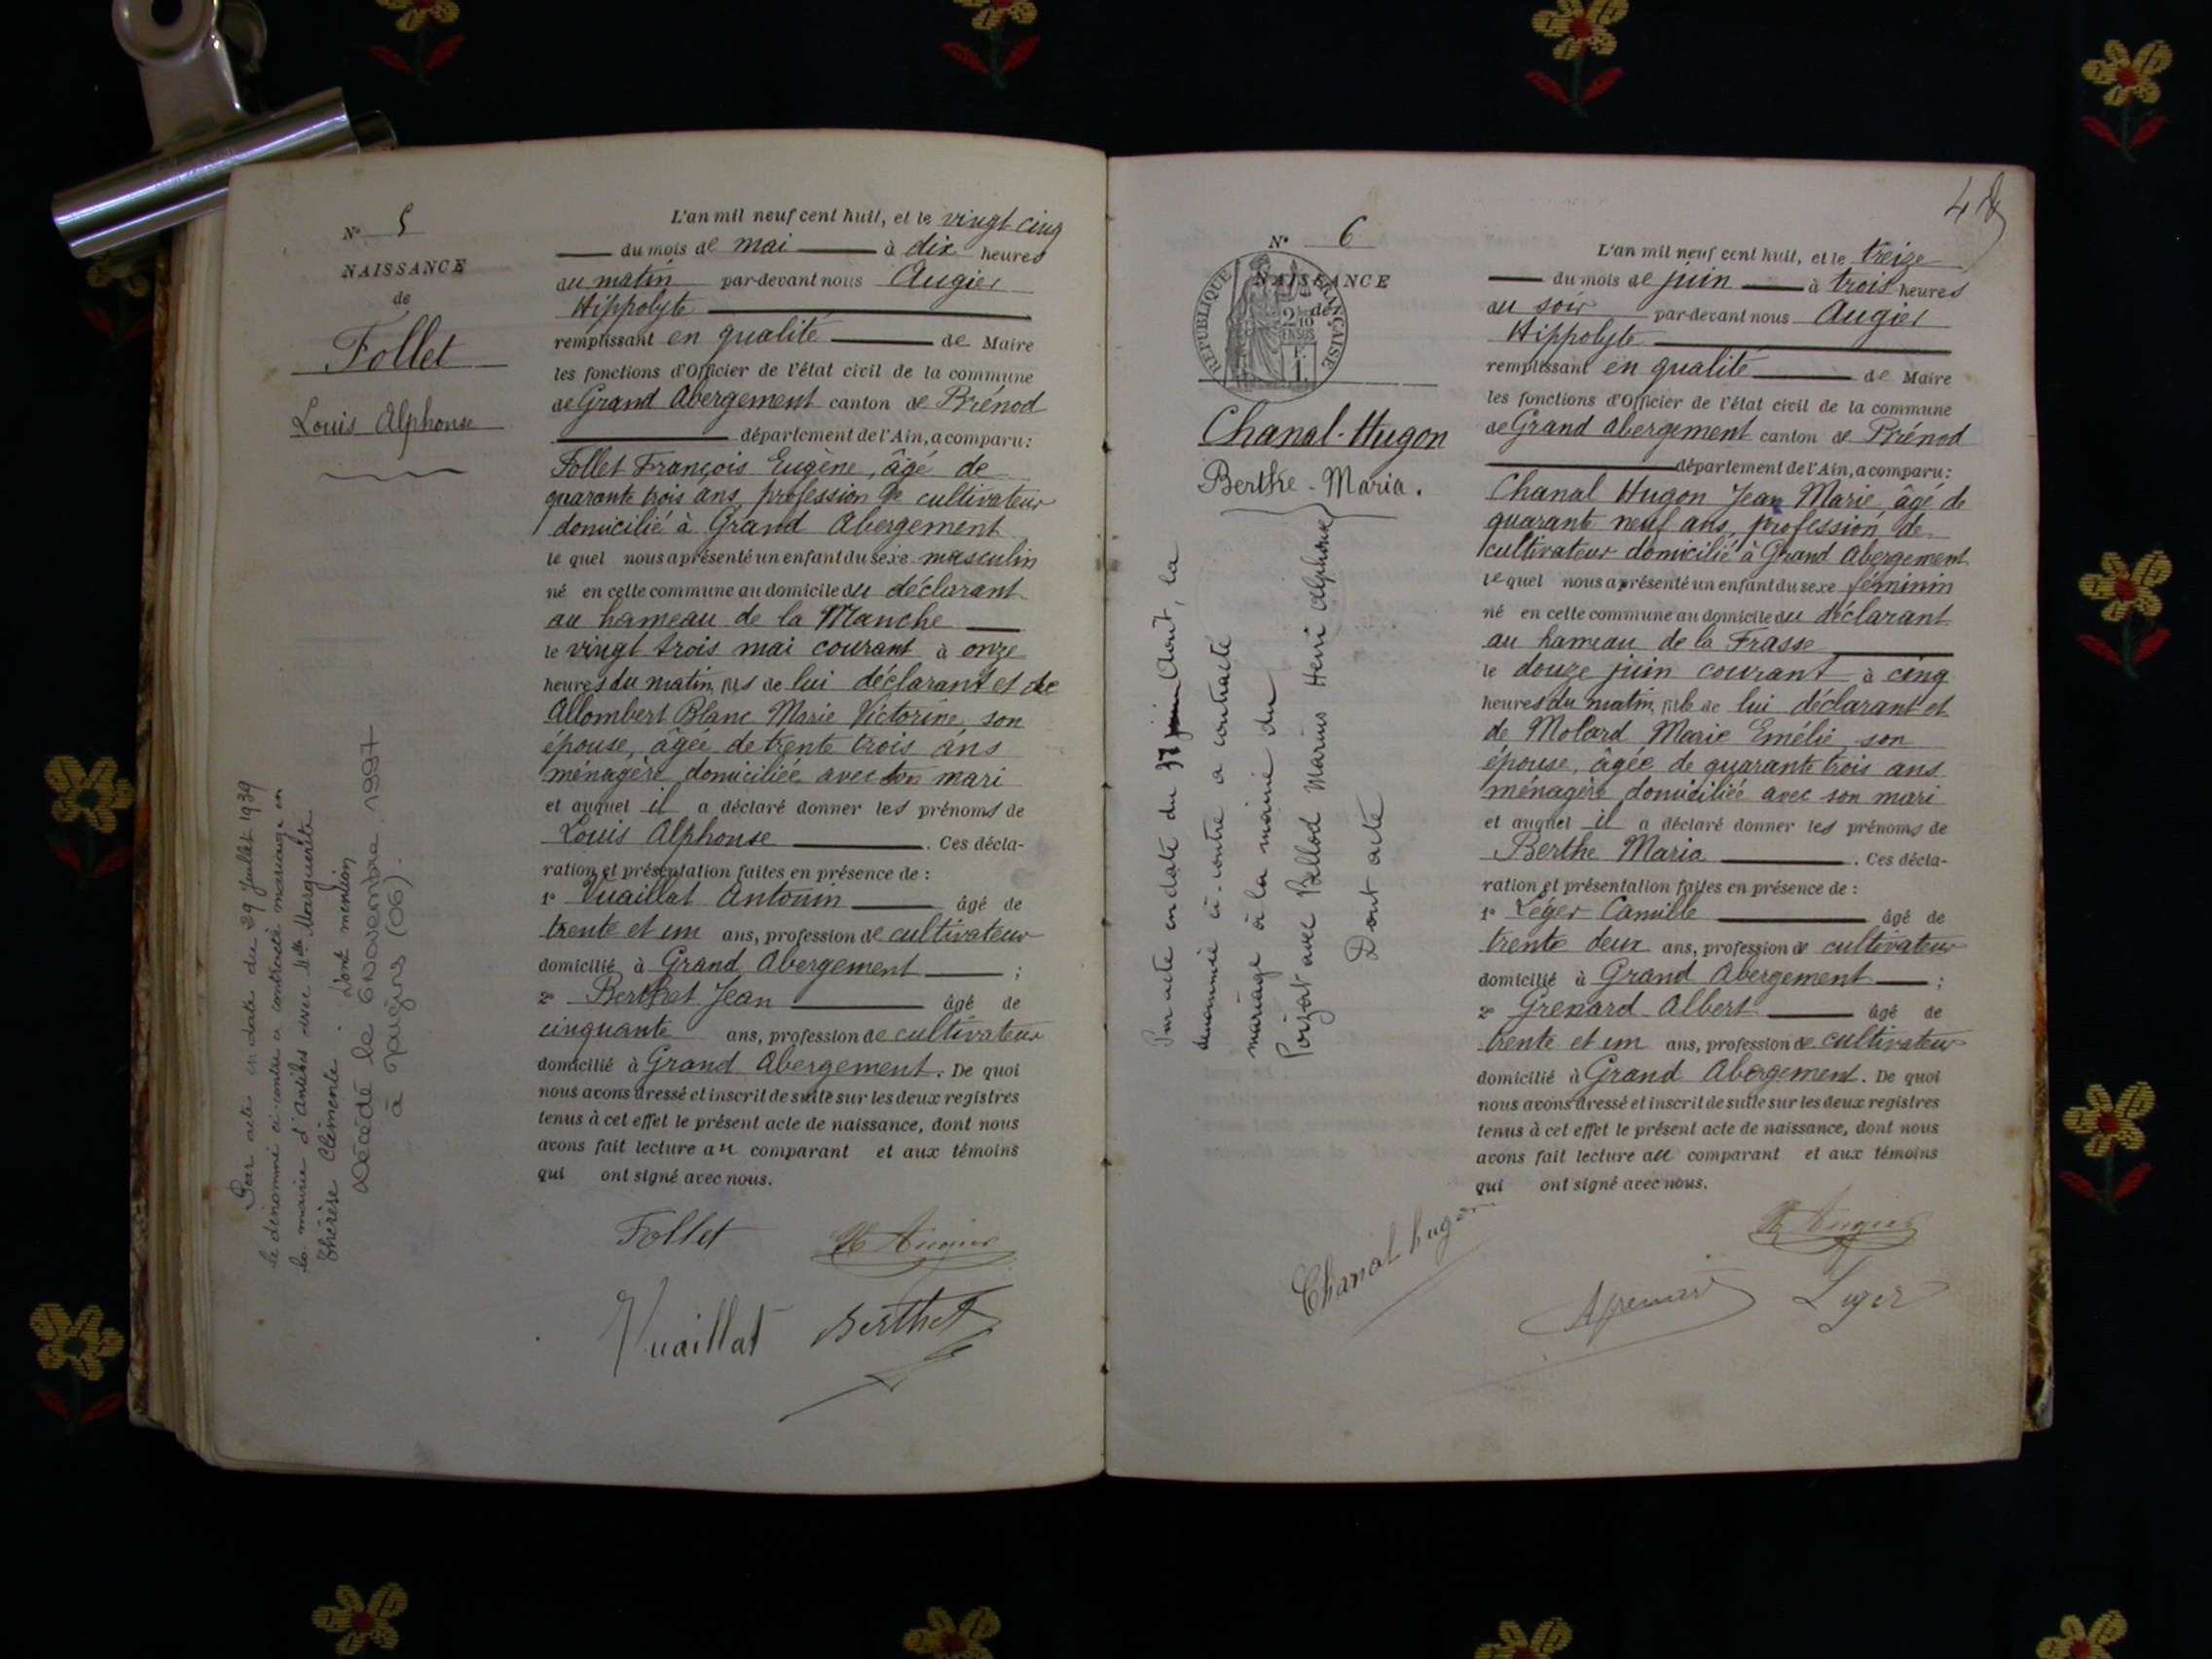 N° 5
NAISSANCE
de
Follet
Louis Alphonse
Par acte en date du 29 Juillet 1939
le dénommé ci-contre a contracté mariage en
la mairie d'Antibes avec Melle Marguerite
Thérèse Clémente. Dont mention
Décédé le 6 Novembre 1997
à (06).
L'an mil neuf cent huit, et le vingt cinq
du mois de mai à dix heures
du matin par-devant nous Augier
Hippolyte
remplissant en qualité de Maire
les fonctions d'Officier de l'état civil de la commune
de Grand Abergement canton de Brénod
département de l'Ain, a comparu :
Follet François Eugène, âgé de
quarante trois ans, profession de cultivateur
domicilié à Grand Abergement
le quel nous a présenté un enfant du sexe masculin
né en cette commune au domicile du déclarant
au hameau de la Manche
le vingt trois mai courant à onze
heures du matin, fils de lui déclarant et de
Allombert Blanc Marie Victorine son
épouse, âgée de trente trois ans
ménagère domiciliée avec son mari
et auquel il a déclaré donner les prénoms de
Louis Alphonse . Ces décla-
ration et présentation faites en présence de :
1° Vuaillat Antonin âgé de
trente et un ans, profession de cultivateur
domicilié à Grand Abergement ;
2° Berthet Jean âgé de
cinquante ans, profession de cultivateur
domicilié à Grand Abergement. De quoi
nous avons dressé et inscrit de suite sur les deux registres
tenus à cet effet le présent acte de naissance, dont nous
avons fait lecture au comparant et aux témoins
qui ont signé avec nous.
Follet H Augier
Vuaillat Berthet
48
N° 6
NAISSANCE
de
RÉPUBLIQUE FRANÇAISE
2/10 EN SUS
1 F.
Chanal-Hugon
Berthe-Maria.
Par acte en date du août, la
dénommée ci-contre a contracté
mariage à la mairie du
Poizat avec Ballod Marius Henri Alphonse
Dont acte
L'an mil neuf cent huit, et le treize
du mois de juin à trois heures
du soir par-devant nous Augier
Hippolyte
remplissant en qualité de Maire
les fonctions d'Officier de l'état civil de la commune
de Grand Abergement canton de Brénod
département de l'Ain, a comparu :
Chanal Hugon Jean Marie, âgé de
quarante neuf ans, profession de
cultivateur domicilié à Grand Abergement
le quel nous a présenté un enfant du sexe féminin
né en cette commune au domicile du déclarant
au hameau de la Frasse
le douze juin courant à cinq
heures du matin, fille de lui déclarant et
de Molard Marie Emélie, son
épouse, âgée de quarante trois ans
ménagère domiciliée avec son mari
et auquel il a déclaré donner les prénoms de
Berthe Maria . Ces décla-
ration et présentation faites en présence de :
1° Léger Camille âgé de
trente deux ans, profession de cultivateur
domicilié à Grand Abergement ;
2° Grenard Albert âgé de
trente et un ans, profession de cultivateur
domicilié à Grand Abergement. De quoi
nous avons dressé et inscrit de suite sur les deux registres
tenus à cet effet le présent acte de naissance, dont nous
avons fait lecture au comparant et aux témoins
qui ont signé avec nous.
Chanal hugon H Augier
AGrenard Leger